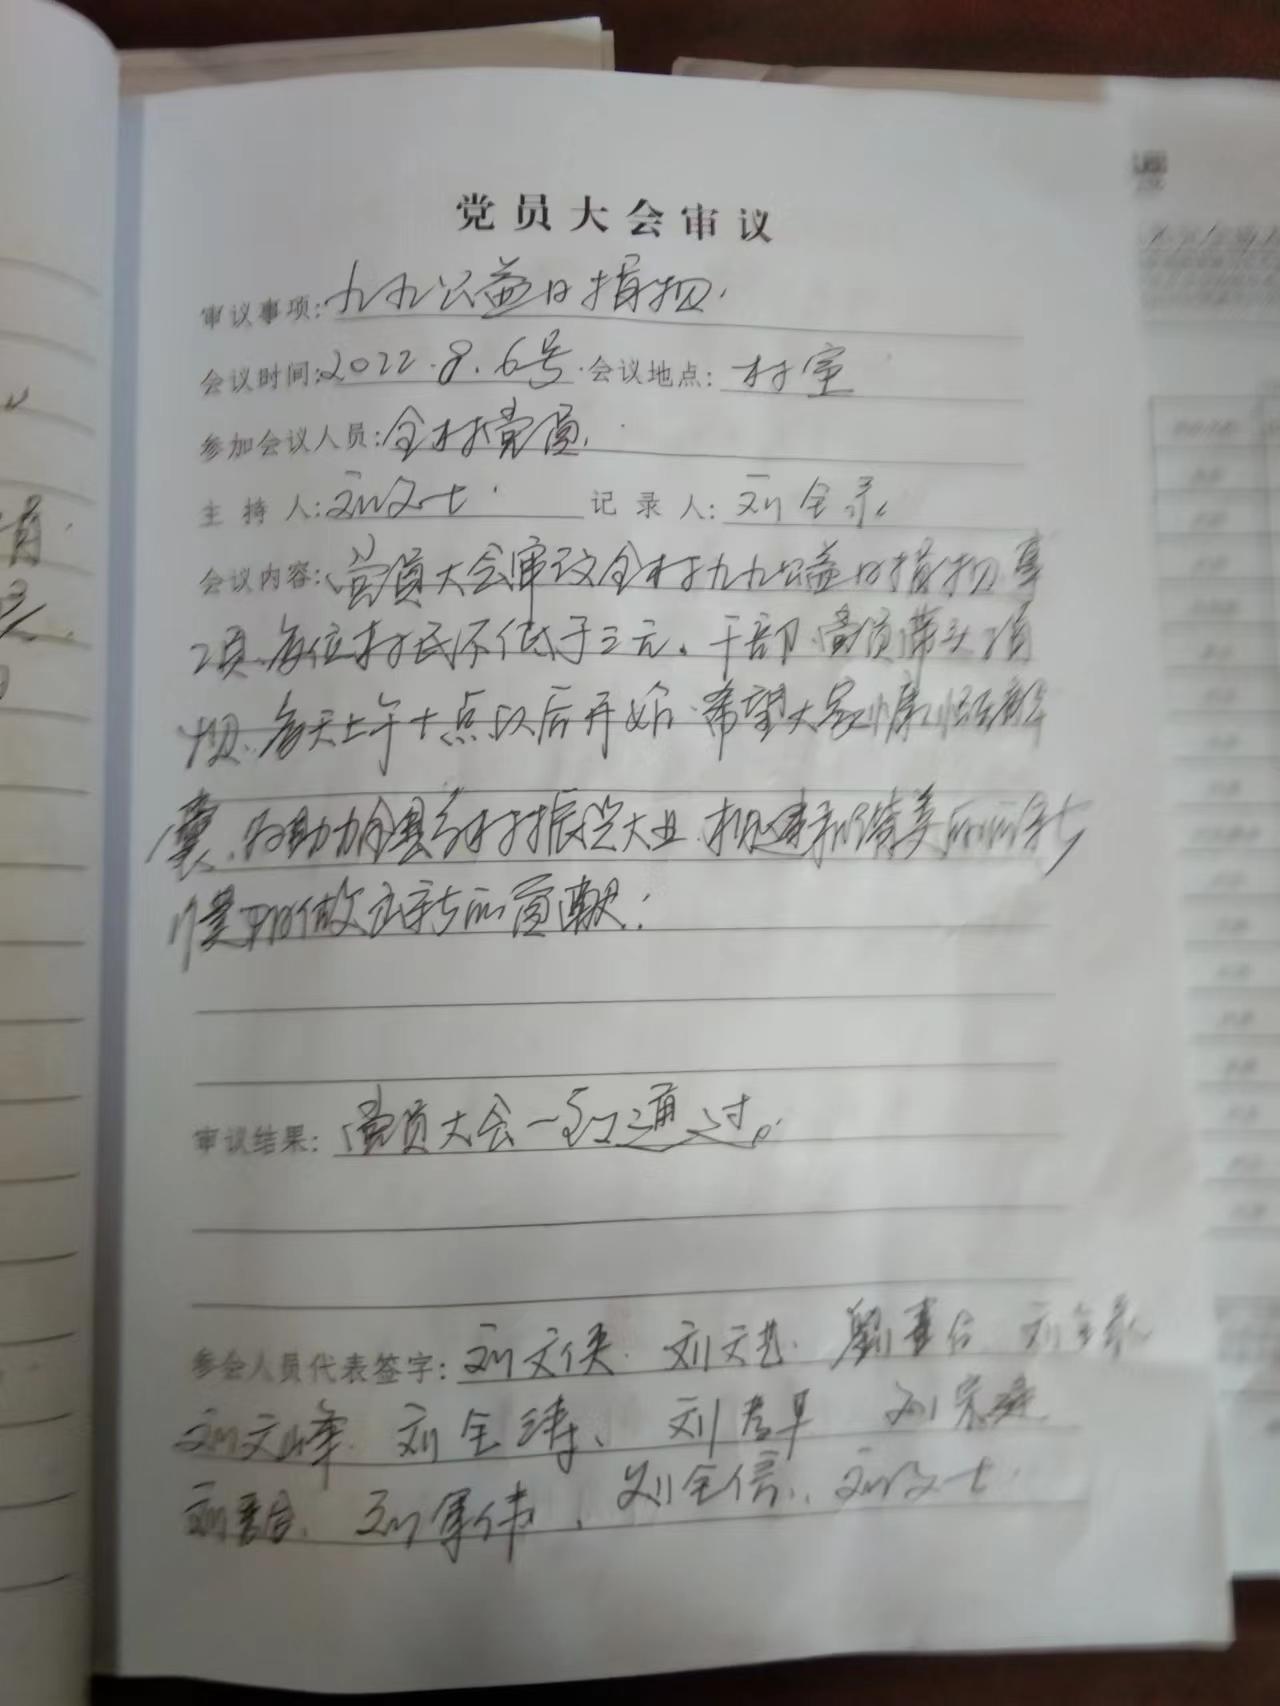 党员大会审议
审议事项:九九公益日捐物.
会议时间:2022.8.6号 会议地点:村室
参加会议人员:全村党员.
主持人:刘文士 记录人:刘全录
会议内容:党员大会审议全村九九公益日捐物事
项、每位村民不低于三元。干部、党员带头
每天上午十点以后开始.希望大家慷慨解
囊、为助力全县乡村振兴大业.构建和谐美
做出新的贡献:
审议结果:党员大会一致通过。
参会人员代表签字:刘文侠.刘文艺.刘全录
刘文峰.刘全涛、
刘军伟、刘全信、刘文士